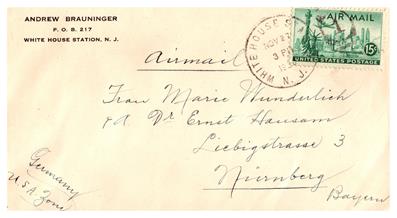 ANDREW BRAUNINGER
P. O. B. 217
WHITE HOUSE STATION, N. J.
WHITE HOUSE
NOV 27
3 PM
N. J.
AIR MAIL
15¢
UNITED STATES POSTAGE
Airmail
Frau Marie Wunderlich
Dr Ernst Hausam
Liebigstrasse 3
Nürnberg
Bayern
Germany
U.S.A Zone